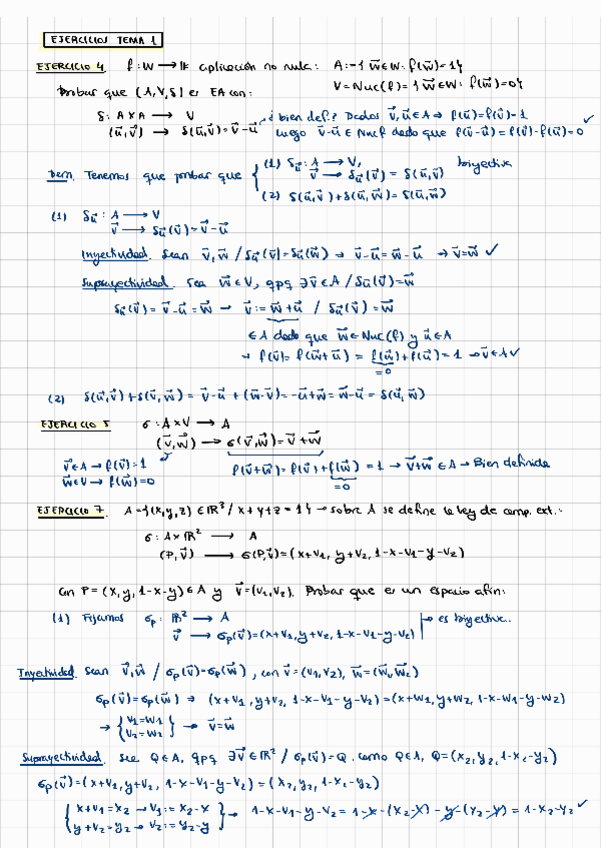 EJERCICIOS TEMA 1
EJERCICIO 4 f: W → K aplicación no nula: A:={w⃗∈W: f(w⃗)=1}
V=Nuc(f)={w⃗∈W: f(w⃗)=0}
Probar que (A,V,δ) es EA con:
δ: A×A → V
(u⃗,v⃗) → δ(u⃗,v⃗)=v⃗-u⃗
¿bien def.? Dados v⃗,u⃗∈A → f(u⃗)=f(v⃗)=1
luego v⃗-u⃗∈Nucf dado que f(v⃗-u⃗)=f(v⃗)-f(u⃗)=0 ✓
Dem. Tenemos que probar que { (1) δu⃗: A → V, biyectiva
v⃗ → δu⃗(v⃗) = δ(u⃗,v⃗)
(2) δ(u⃗,v⃗)+δ(v⃗,w⃗)=δ(u⃗,w⃗)
(1) δu⃗: A → V
v⃗ → δu⃗(v⃗)=v⃗-u⃗
Inyectividad. Sean v⃗,w⃗ / δu⃗(v⃗)=δu⃗(w⃗) → v⃗-u⃗=w⃗-u⃗ → v⃗=w⃗ ✓
Suprayectividad. Sea w⃗∈V, qpq ∃v⃗∈A / δu⃗(v⃗)=w⃗
δu⃗(v⃗)=v⃗-u⃗=w⃗ → v⃗:=w⃗+u⃗ / δu⃗(v⃗)=w⃗
∈A dado que w⃗∈Nuc(f) y u⃗∈A
→ f(v⃗)=f(w⃗+u⃗) = f(w⃗)+f(u⃗)=1 → v⃗∈A ✓
=0
(2) δ(u⃗,v⃗)+δ(v⃗,w⃗) = v⃗-u⃗+(w⃗-v⃗)=-u⃗+w⃗=w⃗-u⃗=δ(u⃗,w⃗)
EJERCICIO 5 σ: A×V → A
(v⃗,w⃗) → σ(v⃗,w⃗)=v⃗+w⃗
v⃗∈A → f(v⃗)=1
w⃗∈V → f(w⃗)=0
f(v⃗+w⃗)=f(v⃗)+f(w⃗)=1 → v⃗+w⃗∈A → Bien definida
=0
EJERCICIO 7. A={(x,y,z)∈ℝ³/x+y+z=1} → sobre A se define la ley de comp. ext.:
σ: A×ℝ² → A
(P,v⃗) → σ(P,v⃗)=(x+v₁, y+v₂, 1-x-v₁-y-v₂)
Con P=(x,y,1-x-y)∈A y v⃗=(v₁,v₂). Probar que es un espacio afín:
(1) Fijamos σp: ℝ² → A → es biyectiva.
v⃗ → σp(v⃗)=(x+v₁, y+v₂, 1-x-v₁-y-v₂)
Inyectividad. Sean v⃗,w⃗ / σp(v⃗)=σp(w⃗), con v⃗=(v₁,v₂), w⃗=(w₁,w₂)
σp(v⃗)=σp(w⃗) → (x+v₁, y+v₂, 1-x-v₁-y-v₂)=(x+w₁, y+w₂, 1-x-w₁-y-w₂)
→ {v₁=w₁
v₂=w₂} → v⃗=w⃗
Suprayectividad. Sea Q∈A, qpq ∃v⃗∈ℝ² / σp(v⃗)=Q. Como Q∈A, Q=(x₂,y₂,1-x₂-y₂)
σp(v⃗)=(x+v₁, y+v₂, 1-x-v₁-y-v₂)=(x₂,y₂,1-x₂-y₂)
{x+v₁=x₂ → v₁:=x₂-x
y+v₂=y₂ → v₂:=y₂-y} → 1-x-v₁-y-v₂=1-x-(x₂-x)-y-(y₂-y)=1-x₂-y₂ ✓